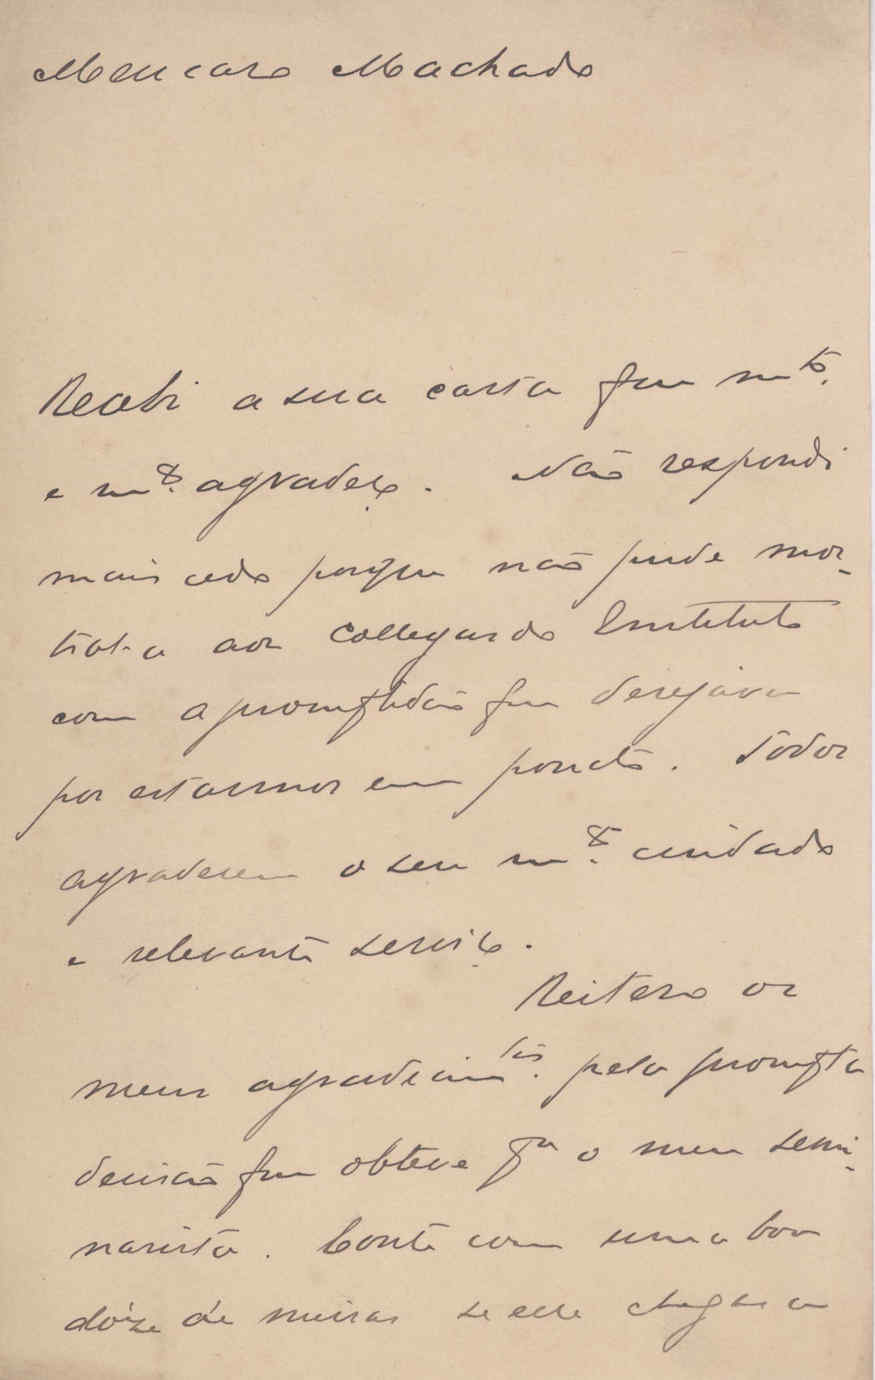 Meu caro Machado
Recebi a sua carta que m.to
e m.to agradeço. Não respondi
mais cedo porque não pude mos-
tral-a aos collegas do Instituto
com a promptidão que desejava
por estarmos em ponto. Todos
agradecem o seu m.to cuidado
e relevante serviço.
Reitero os
meus agradecim.tos pela prompta
decisão que obteve p.a o meu semi-
narista. Conte com uma boa
dóze de missas se elle chegar a